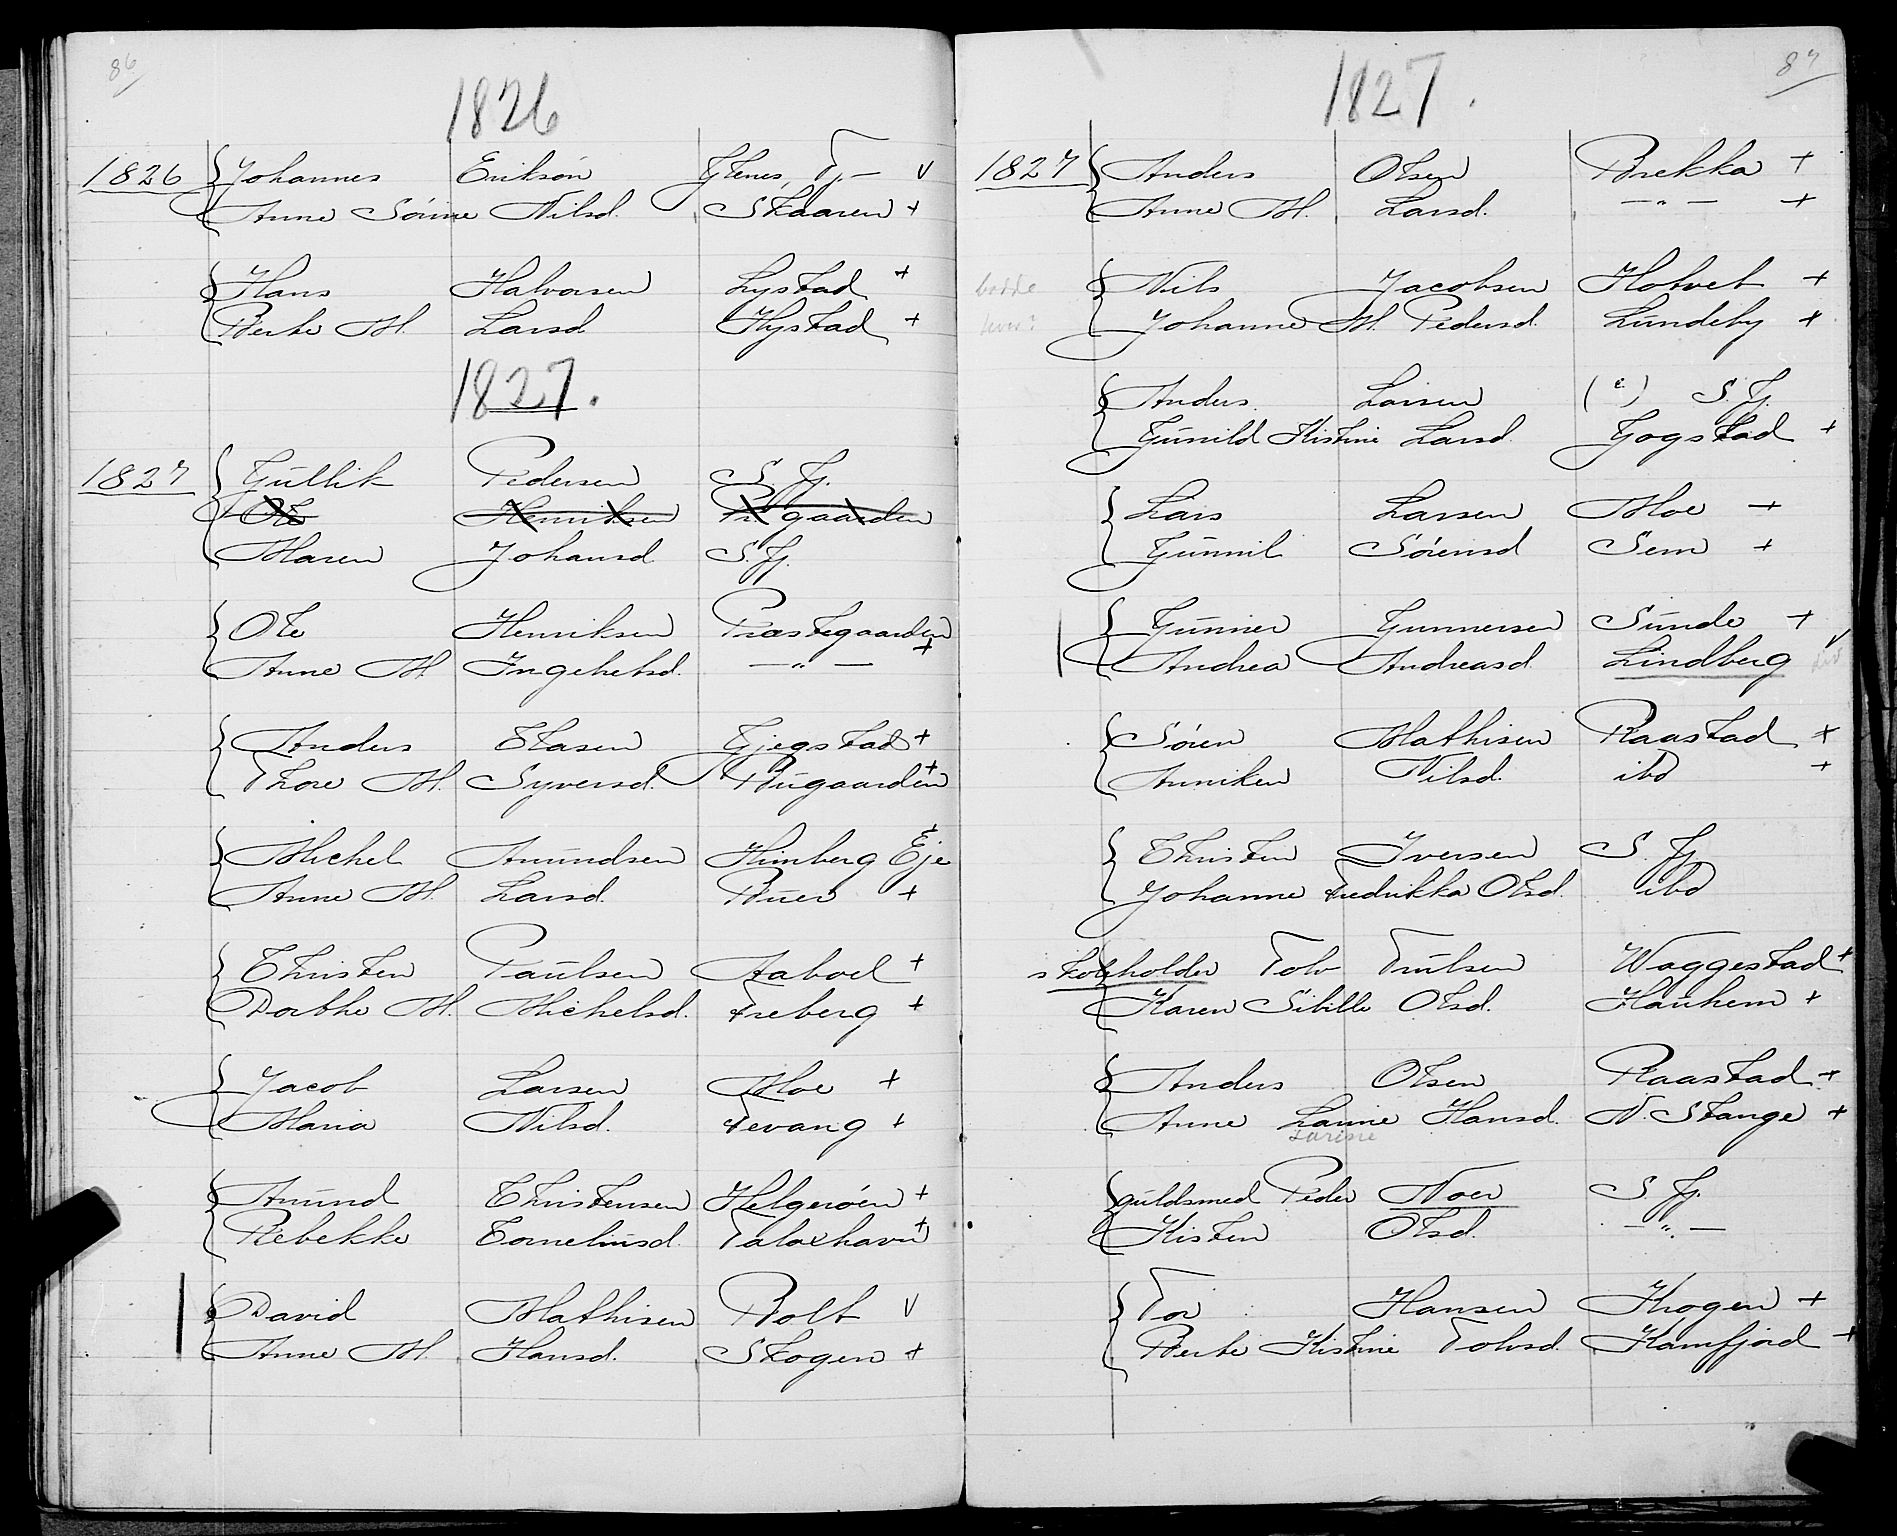 86
1826
1826 Johannes Eriksön Tj.
Anne Sörine Nilsd. Skaaren +
Hans Halvorsen Lystad +
Berte M. Larsd. Hystad +
1827.
1827 Gullik Pedersen S. Fj.
Ole Henriksen Pr gaarden
Maren Johansd. S. Fj.
Ole Henriksen Præstegaarden
Anne M. Ingebretsd. — „ — +
Anders Clasen Gjegstad +
Thore M. Syversd. Bugaarden +
Michel Amundsen Himberg Eje +
Anne M. Larsd. Buer +
Christen Paulsen Aabol +
Dorthe M. Michelsd. Freberg +
Jacob Larsen Moe +
Maria Nilsd. Fevang +
Amund Christensen Helgeröen +
Rebekke Corneliusd. +
David Mathisen Bolt v
Anne M. Hansd. Skogen +
87
1827.
1827 Anders Olsen Brekka +
Anne M. Larsd. — „ — +
Nils Jacobsen Hotvet +
Johanne M. Pedersd. Lundeby +
Anders Larsen S. Fj.
Gunild Kistine Larsd. Gogstad +
Lars Larsen Moe +
Gunnil Sörensd Sem +
Gunner Gunnersen Sunde +
Andrea Andreasd. Lindberg v
Sören Mathisen Raastad +
Anniken Nilsd. ibd +
Christen Iversen S. Fj.
Johanne Fredrikka Olsd. ibd
skoleholder Tolv Trulsen Waggestad +
Karen Sibille Olsd. Haukem +
Anders Olsen Raastad +
Anne Larine Hansd. N. Stange +
Larine
guldsmed Peder Noer S. Fj.
Kisten Olsd. — „ —
Tor Hansen Krogen +
Berte Kistine Tolvsd. Kamfjord +